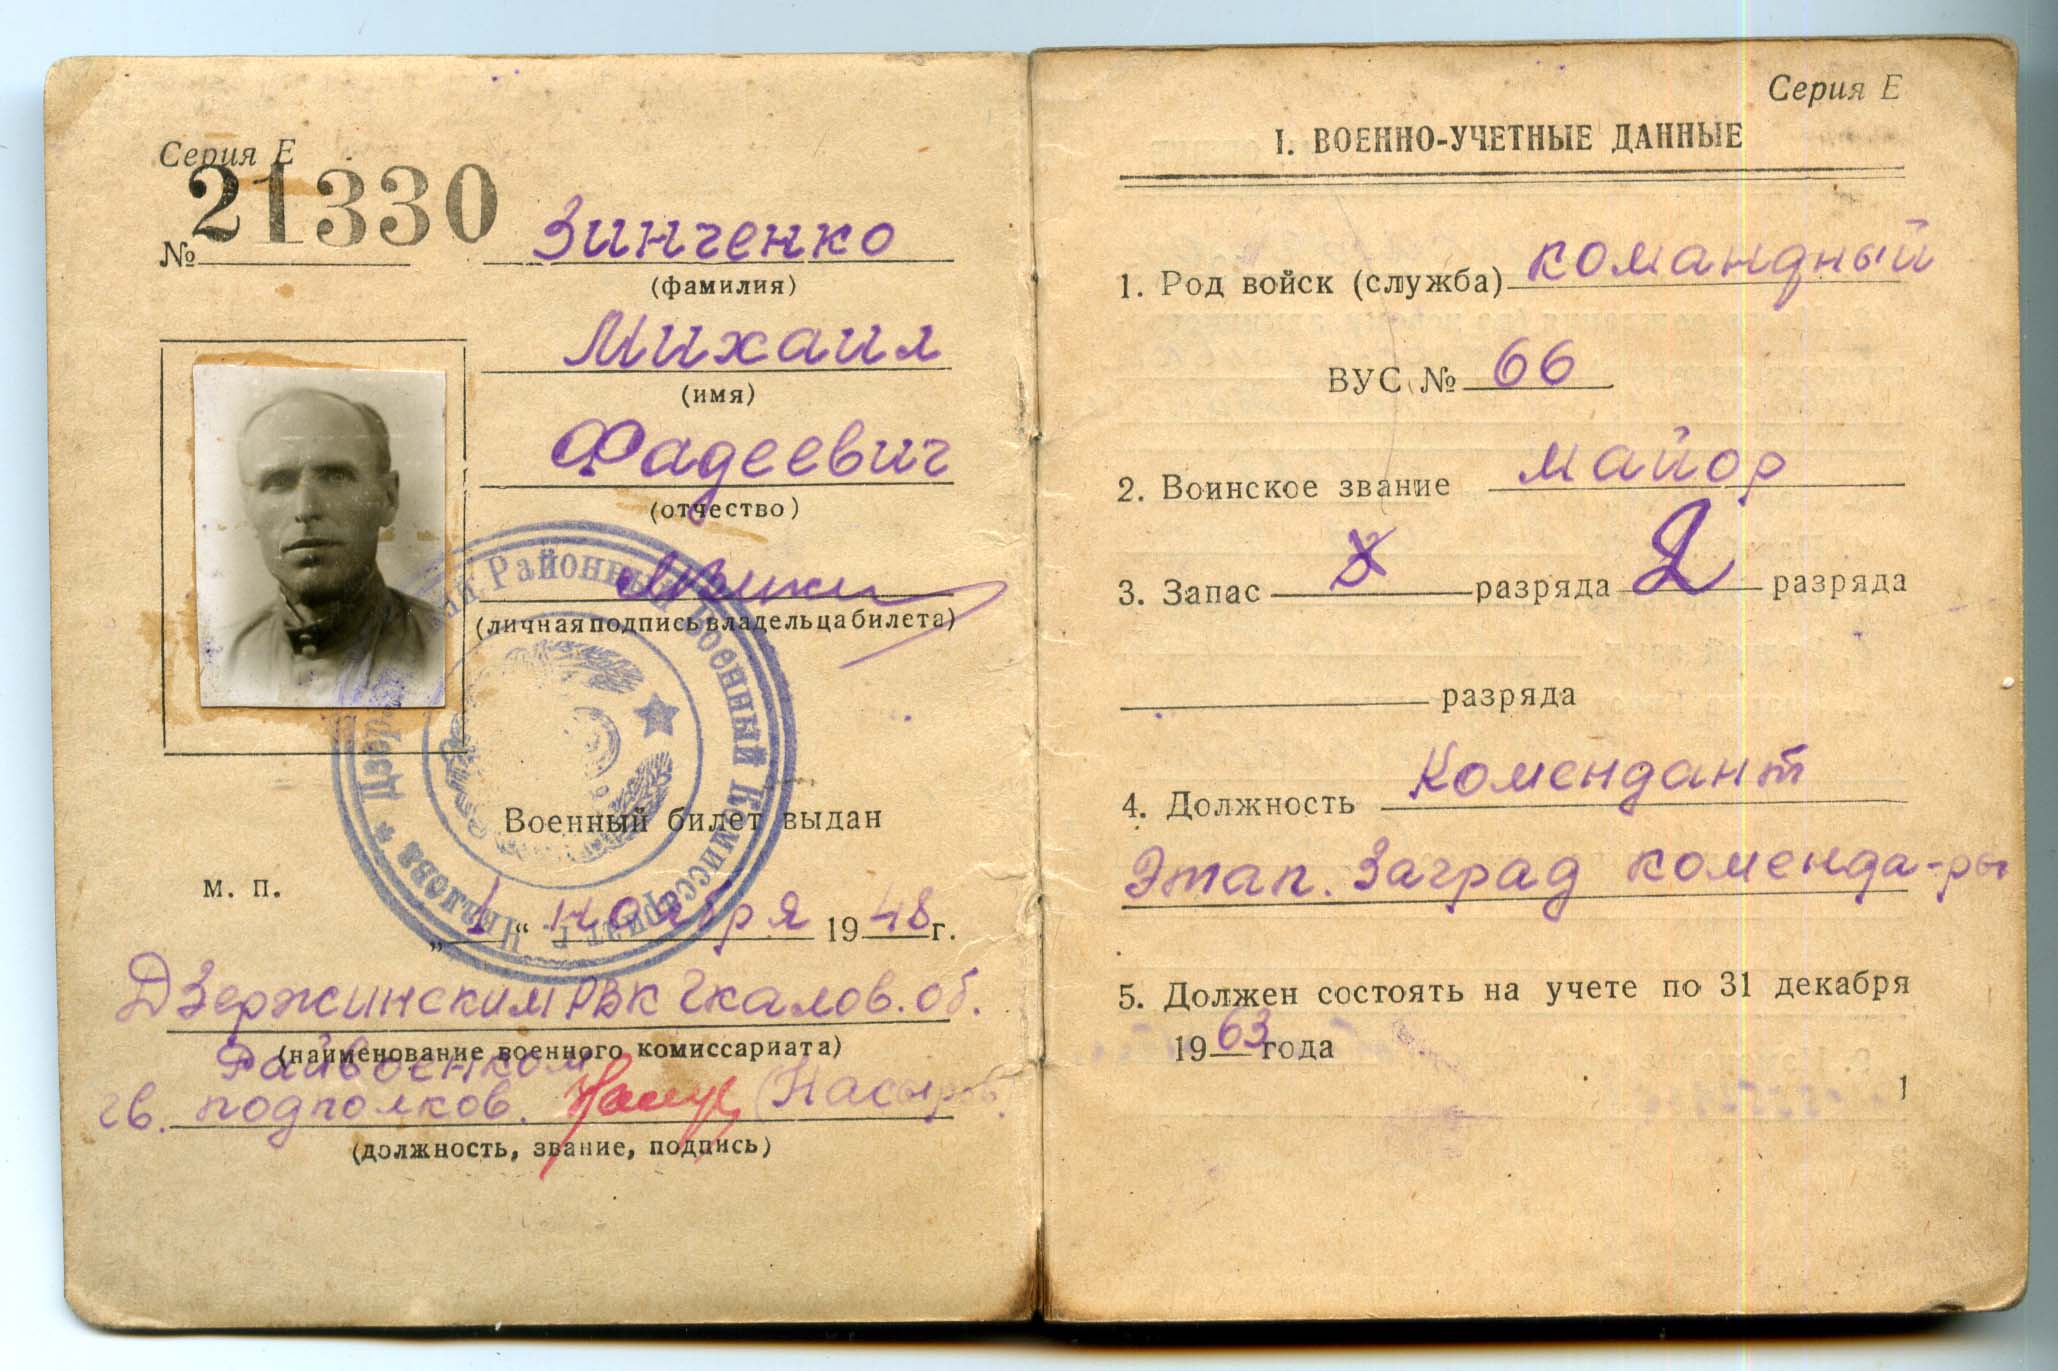 Серия Е
№ 21330
Зинченко
(фамилия)
Михаил
(имя)
Фадеевич
(отчество)
(личная подпись владельца билета)
Дзержинский Районный Военный Комиссариат г. Чкалова
Военный билет выдан
м. п.
„1“ ноября 1948 г.
Дзержинским РВК Чкалов. об.
(наименование военного комиссариата)
Райвоенком
гв. подполков. (Насыров)
(должность, звание, подпись)
Серия Е
I. ВОЕННО-УЧЕТНЫЕ ДАННЫЕ
1. Род войск (служба) командный
ВУС № 66
2. Воинское звание майор
3. Запас разряда 2 разряда
разряда
4. Должность Комендант
Этап. Заград коменда-ры
5. Должен состоять на учете по 31 декабря
1963 года
1